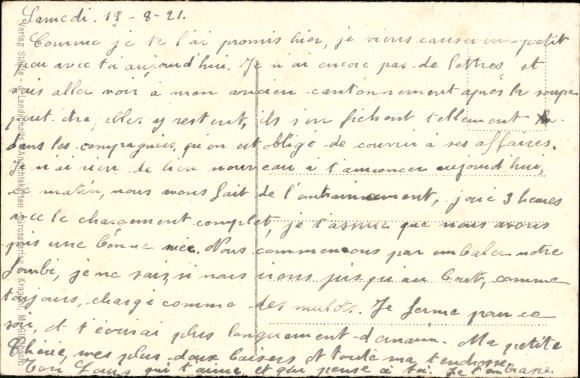 Samedi. 13-8-21.
Comme je te l'ai promis hier, je viens causer un petit
peu avec toi aujourd'hui. Je n'ai encore pas de lettres et
vais aller voir à mon ancien cantonnement après la soupe
peut être, elles y restent, ils s'en fichent tellement
dans les compagnies, qu'on est obligé de courrir à ses affaires.
Je n'ai rien de bien nouveau à t'annoncer aujourd'hui,
ce matin, nous avons fait de l'entrainement, 3 heures
avec le chargement complet, je t'assure que nous avons
pris une bonne suée. Nous commencons par emballer notre
fourbi, je ne sais si nous irons jusqu'au bout, comme
toujours, chargé comme des mulots. Je ferme pour ce
soir, et t'écrirai plus longuement demain. Ma petite
Chérie, mes plus doux baisers et toute ma tendresse.
Ton Louis qui t'aime et qui pense à toi. Je t'embrasse.
Verlag